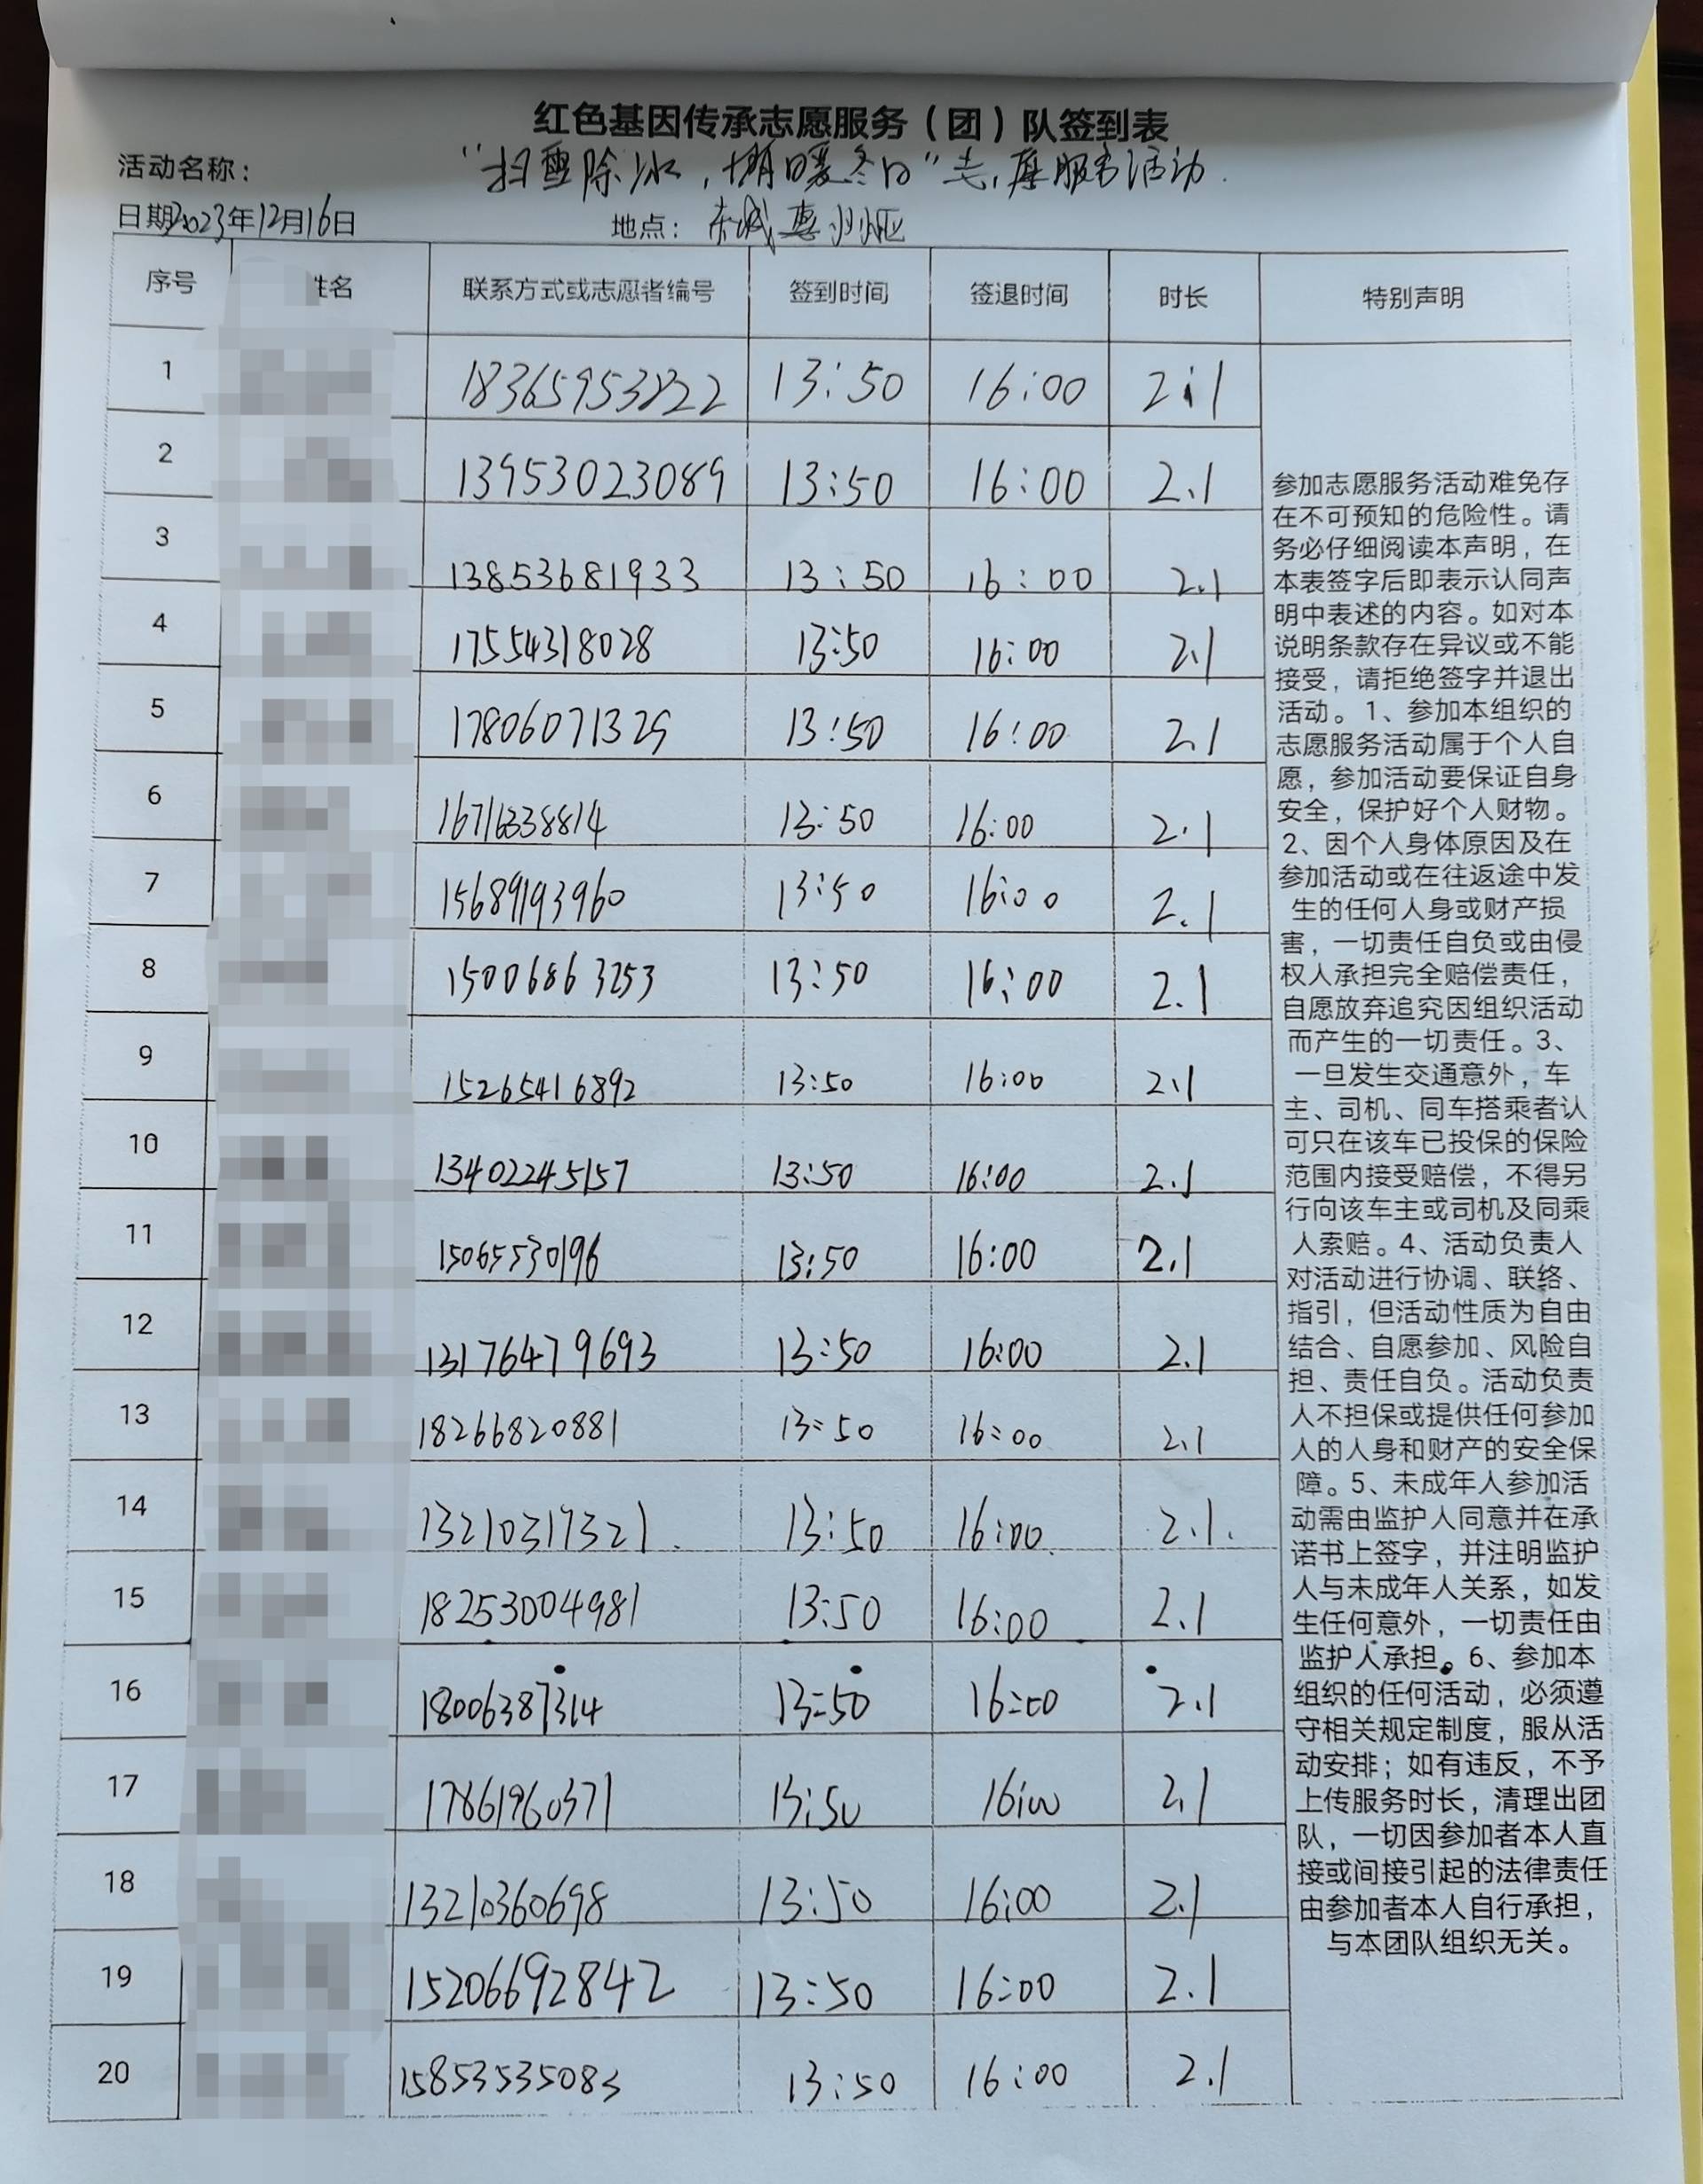 红色基因传承志愿服务（团）队签到表
活动名称： “扫雪除冰，情暖冬日”志愿服务活动.
日期2023年12月16日 地点：东城惠州
序号 姓名 联系方式或志愿者编号 签到时间 签退时间 时长 特别声明
1 18365953222 13:50 16:00 2.1
2 13953023089 13:50 16:00 2.1
3 13853681933 13:50 16:00 2.1
4 17554318028 13:50 16:00 2.1
5 17806071325 13:50 16:00 2.1
6 16716338814 13:50 16:00 2.1
7 15689193960 13:50 16:00 2.1
8 15006863253 13:50 16:00 2.1
9 15265416892 13:50 16:00 2.1
10 13402245157 13:50 16:00 2.1
11 15065530196 13:50 16:00 2.1
12 13176479693 13:50 16:00 2.1
13 18266820881 13:50 16:00 2.1
14 13210317321. 13:50 16:00 2.1.
15 18253004981 13:50 16:00 2.1
16 18006387314 13:50 16:00 2.1
17 17861960371 13:50 16:00 2.1
18 13210360698 13:50 16:00 2.1
19 15206692842 13:50 16:00 2.1
20 15853535083 13:50 16:00 2.1
参加志愿服务活动难免存
在不可预知的危险性。请
务必仔细阅读本声明，在
本表签字后即表示认同声
明中表述的内容。如对本
说明条款存在异议或不能
接受，请拒绝签字并退出
活动。1、参加本组织的
志愿服务活动属于个人自
愿，参加活动要保证自身
安全，保护好个人财物。
2、因个人身体原因及在
参加活动或在往返途中发
生的任何人身或财产损
害，一切责任自负或由侵
权人承担完全赔偿责任，
自愿放弃追究因组织活动
而产生的一切责任。3、
一旦发生交通意外，车
主、司机、同车搭乘者认
可只在该车已投保的保险
范围内接受赔偿，不得另
行向该车主或司机及同乘
人索赔。4、活动负责人
对活动进行协调、联络、
指引，但活动性质为自由
结合、自愿参加、风险自
担、责任自负。活动负责
人不担保或提供任何参加
人的人身和财产的安全保
障。5、未成年人参加活
动需由监护人同意并在承
诺书上签字，并注明监护
人与未成年人关系，如发
生任何意外，一切责任由
监护人承担。6、参加本
组织的任何活动，必须遵
守相关规定制度，服从活
动安排；如有违反，不予
上传服务时长，清理出团
队，一切因参加者本人直
接或间接引起的法律责任
由参加者本人自行承担，
与本团队组织无关。